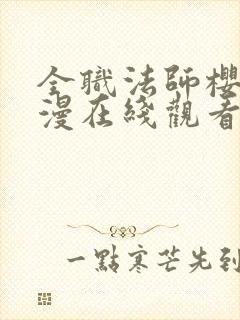 全職法師櫻
漫在綫觀看
一點寒芒先到